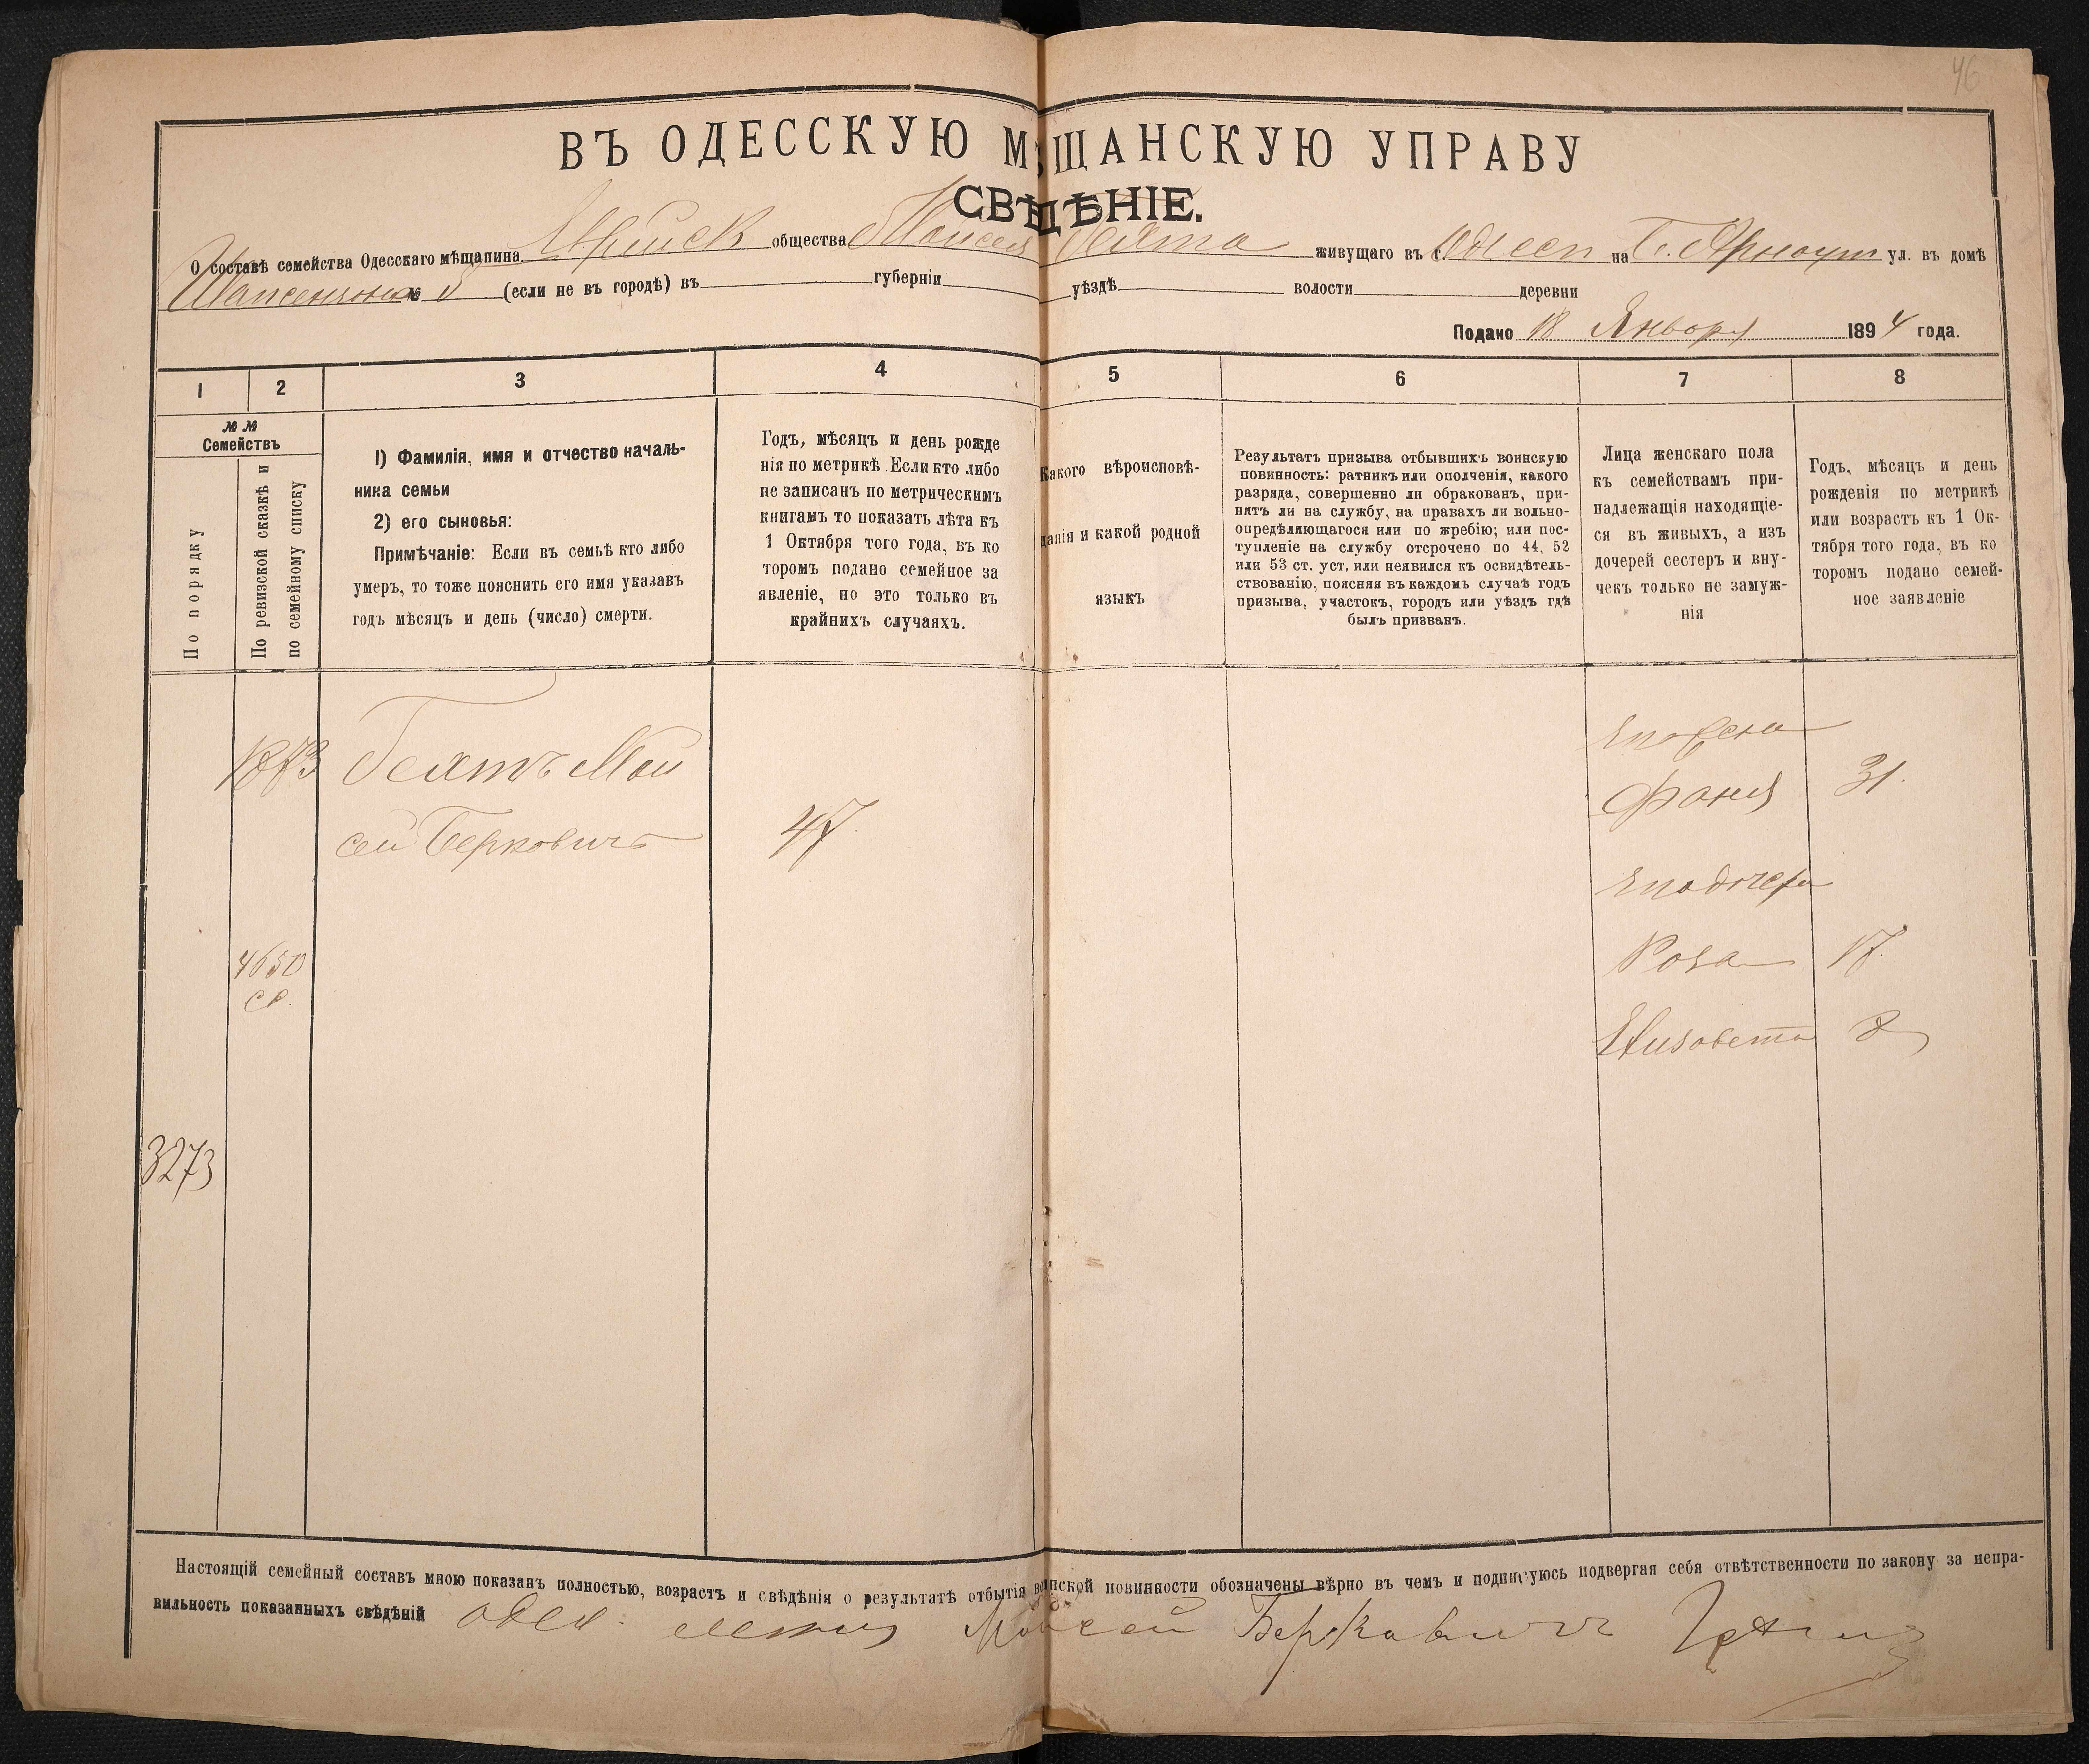 46
ВЪ ОДЕССКУЮ МѢЩАНСКУЮ УПРАВУ
СВѢДѢНІЕ.
О составѣ семейства Одесскаго мѣщанина Еврейск общества Моисея Геята живущаго въ г. Одессѣ на Б. Арноут ул. въ домѣ
№ (если не въ городѣ) въ губерніи уѣздѣ волости деревни
Подано 18 Января 1894 года.
1 2 3 4 5 6 7 8
№№
Семействъ
По порядку
По ревизской сказкѣ и
по семейному списку
1) Фамилія, имя и отчество началь-
ника семьи
2) его сыновья:
Примѣчаніе: Если въ семьѣ кто либо
умеръ, то тоже пояснить его имя указавъ
годъ мѣсяцъ и день (число) смерти.
Годъ, мѣсяцъ и день рожде
нія по метрикѣ. Если кто либо
не записанъ по метрическимъ
книгамъ то показать лѣта къ
1 Октября того года, въ ко
торомъ подано семейное за
явленіе, но это только въ
крайнихъ случаяхъ.
Какого вѣроисповѣ-
данія и какой родной
языкъ
Результатъ призыва отбывшихъ воинскую
повинность: ратникъ или ополченія, какого
разряда, совершенно ли обракованъ, при-
нятъ ли на службу, на правахъ ли вольно-
опредѣляющагося или по жребію; или пос-
тупленіе на службу отсрочено по 44, 52
или 53 ст. уст. или неявился къ освидѣтель-
ствованію, поясняя въ каждомъ случаѣ годъ
призыва, участокъ, городъ или уѣздъ гдѣ
былъ призванъ.
Лица женскаго пола
къ семействамъ при-
надлежащія находящіе-
ся въ живыхъ, а изъ
дочерей сестеръ и вну-
чекъ только не замуж-
нія
Годъ, мѣсяцъ и день
рожденія по метрикѣ
или возрастъ къ 1 Ок-
тября того года, въ ко
торомъ подано семей-
ное заявленіе
1873 Геятъ Мои
сей Берковичъ 47
Его жена
Фаня 31.
Его дочери
4650
Роза 17.
Елизавета 8
3273
Настоящій семейный составъ мною показанъ полностью, возрастъ и свѣдѣнія о результатѣ отбытія воинской повинности обозначены вѣрно въ чемъ и подписуюсь подвергая себя отвѣтственности по закону за непра-
вильность показанныхъ свѣдѣній Моисей Берковичъ